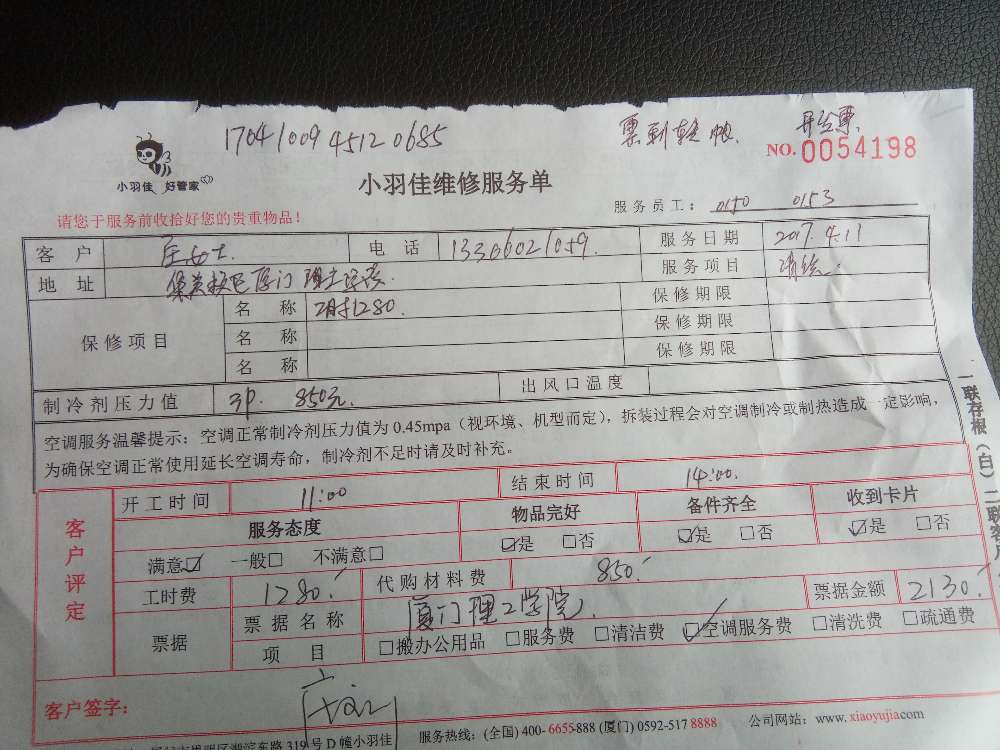 17041009 45120685
票到转帐 开发票
NO.0054198
小羽佳 好管家
小羽佳维修服务单
请您于服务前收拾好您的贵重物品！
服务员工： 0150 0153
客户 女士. 电话 13366021059. 服务日期 2017.4.11
地址 集美 厦门理工学院. 服务项目
保修项目 名称 1280. 保修期限
名称 保修期限
名称 保修期限
制冷剂压力值 3P. 850元. 出风口温度
空调服务温馨提示：空调正常制冷剂压力值为 0.45mpa（视环境、机型而定），拆装过程会对空调制冷或制热造成一定影响，
为确保空调正常使用延长空调寿命，制冷剂不足时请及时补充。
一联存根（白）二联客户
客户评定
开工时间 11:00 结束时间 14:00.
服务态度 物品完好 备件齐全 收到卡片
满意☑ 一般□ 不满意□ ☑是 □否 ☑是 □否 ☑是 □否
工时费 1280. 代购材料费 850. 票据金额 2130.
票据 票据名称 厦门理工学院.
项目 □搬办公用品 □服务费 □清洁费 ☑空调服务费 □清洗费 □疏通费
客户签字：
湖滨东路 319 号 D 幢小羽佳 服务热线：(全国) 400-6655-888 (厦门) 0592-517 8888 公司网站：www.xiaoyujia.com